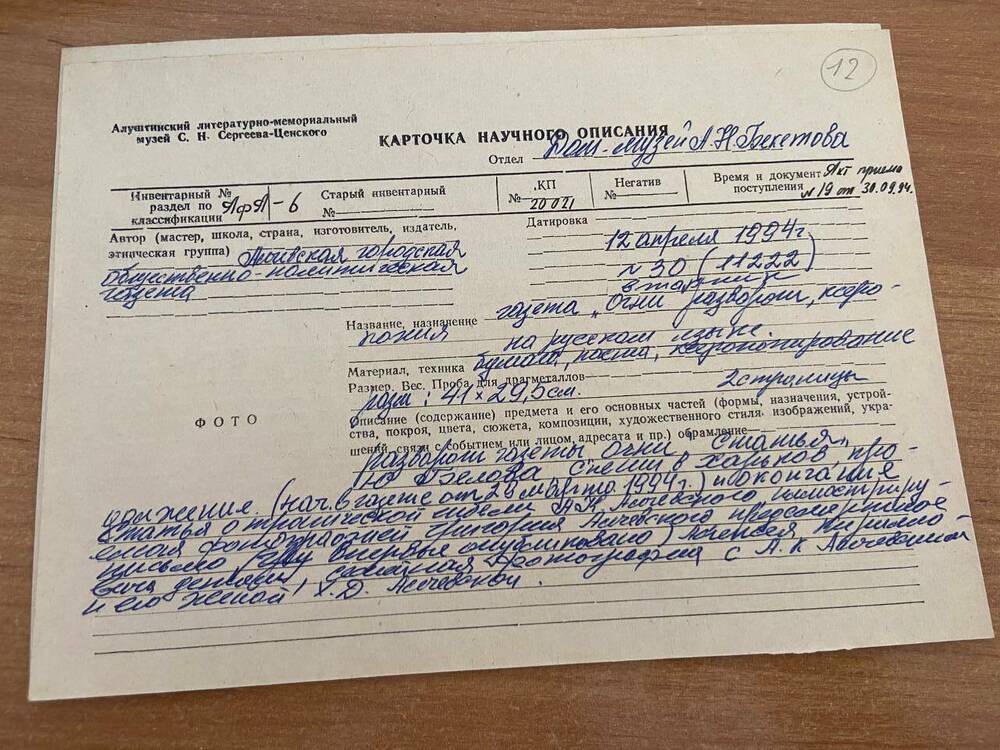 12
Алуштинский литературно-мемориальный
музей С. Н. Сергеева-Ценского
КАРТОЧКА НАУЧНОГО ОПИСАНИЯ
Отдел Дом-музей А.Н. Бекетова
Инвентарный №
раздел по
классификации АфА-6
Старый инвентарный
№
КП
№ 20021
Негатив
№
Время и документ Акт приема
поступления №19 от 30.09.94.
Автор (мастер, школа, страна, изготовитель, издатель,
этническая группа) городская
общественно-политическая
газета
Датировка
12 апреля 1994г.
№ 30 (11222)
вторник
Название, назначение газета „Огни разворот, ксеро-
копия на русском языке.
Материал, техника бумага, паста, ксерокопирование
Размер. Вес. Проба для драгметаллов
разм: 41 × 29,5см. 2 страницы
Описание (содержание) предмета и его основных частей (формы, назначения, устрой-
ства, покроя, цвета, сюжета, композиции, художественного стиля, изображений, укра-
шений, связи с событием или лицом, адресата и пр.) обрамление
ФОТО
разворот газеты Огни, статья
Ю Белова „Спеши в Харьков, про-
должение. (нач. в газете от 26 марта 1994г.) и окончания
статья о трагической гибели А.К. Алчевского иллюстриру-
емая фотографией Григория Алчевского предсмертное
письмо впервые опубликовано) Алексея Кирилло-
вича семейная фотография с А. К Алчевским
и его женой, Х.Д. Алчевской.